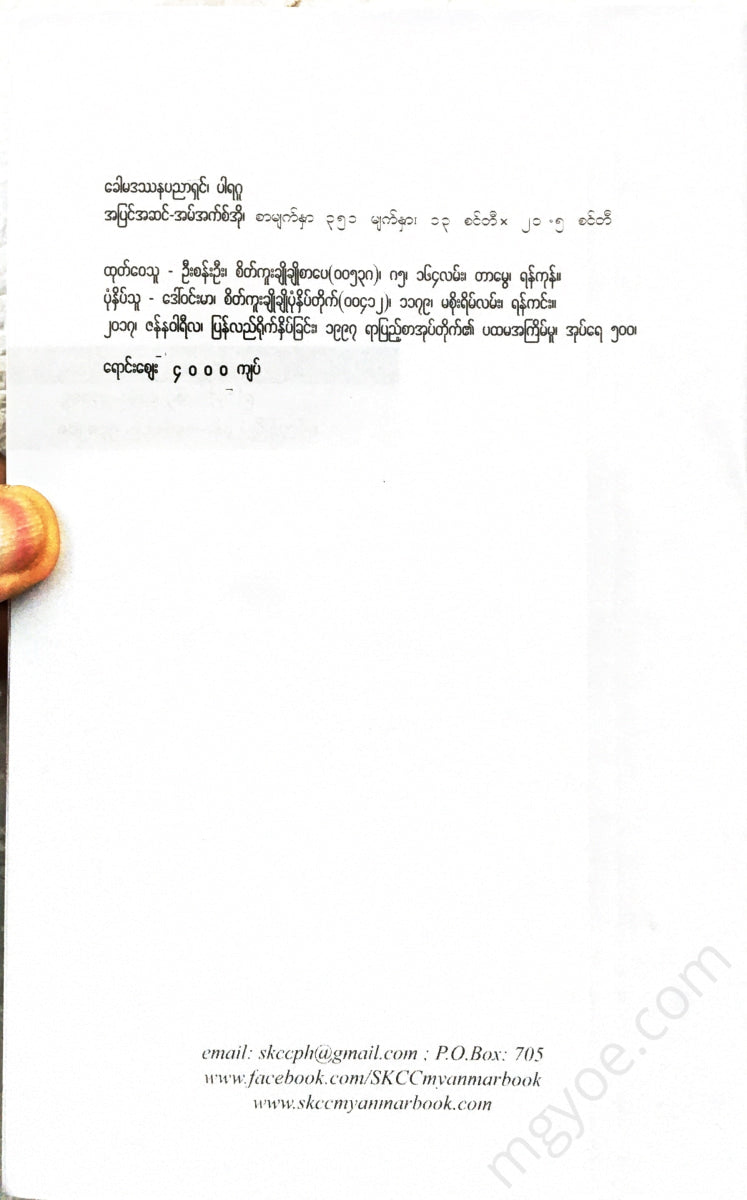 ခေါမဒဿနပညာရှင်၊ ပါရဂူ
အပြင်အဆင်-အမ်အက်စ်အို၊ စာမျက်နှာ ၃၅၁ မျက်နှာ၊ ၁၃ စင်တီ× ၂၁ ·၅ စင်တီ
ထုတ်ဝေသူ - ဦးစန်းဦး၊ စိတ်ကူးချိုချိုစာပေ(၀၀၅၃၈)၊ ဂ၅၊ ၁၆၄လမ်း၊ တာမွေ၊ ရန်ကုန်။
ပုံနှိပ်သူ - ဒေါ်ဝင်းမာ၊ စိတ်ကူးချိုချိုပုံနှိပ်တိုက်(၀၀၄၁၂)၊ ၁၁၇၉၊ မစိုးရိမ်လမ်း၊ ရန်ကင်း။
၂၀၁၇၊ ဇန်နဝါရီလ၊ ပြန်လည်ရိုက်နှိပ်ခြင်း၊ ၁၉၉၇ ရာပြည့်စာအုပ်တိုက်၏ ပထမအကြိမ်မူ၊ အုပ်ရေ ၅၀၀၊
ရောင်းဈေး ၄ ၀ ၀ ၀ ကျပ်
email: skccph@gmail.com ; P.O.Box: 705
www.facebook.com/SKCCmyanmarbook
www.skccmyanmarbook.com
mgyoe.com